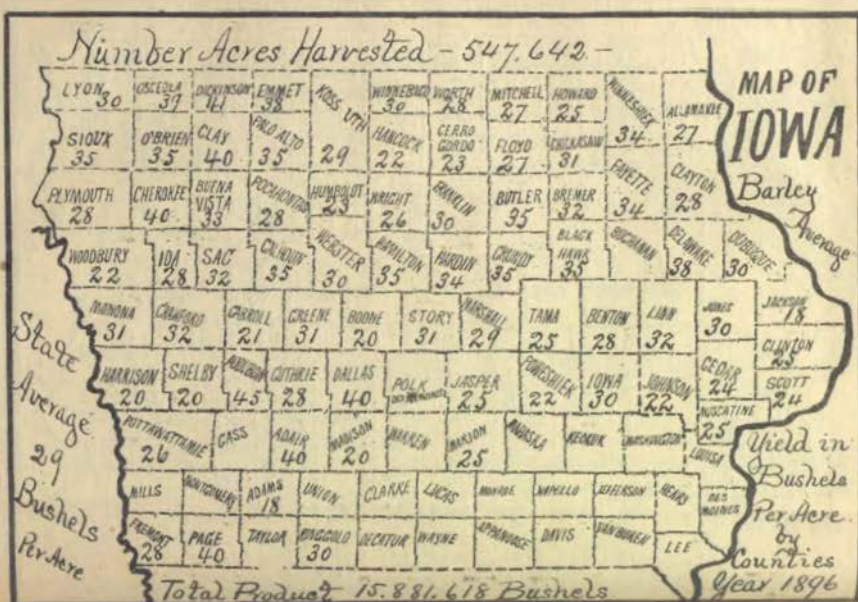 Number Acres Harvested - 547.642 -
MAP OF
IOWA
Barley
Average
LYON 30
OSCEOLA 39
DICKINSON 41
EMMET 38
KOSSUTH 29
WINNEBAGO 30
WORTH 28
MITCHELL 27
HOWARD 25
WINNESHIEK 34
ALLAMAKEE 27
SIOUX 35
O'BRIEN 35
CLAY 40
PALO ALTO 35
HANCOCK 22
CERRO GORDO 23
FLOYD 27
CHICKASAW 31
PLYMOUTH 28
CHEROKEE 40
BUENA VISTA 33
POCAHONTAS 28
HUMBOLDT 23
WRIGHT 26
FRANKLIN 30
BUTLER 35
BREMER 32
FAYETTE 34
CLAYTON 28
WOODBURY 22
IDA 28
SAC 32
CALHOUN 35
WEBSTER 30
HAMILTON 35
HARDIN 34
GRUNDY 35
BLACK HAWK 35
BUCHANAN
DELAWARE 38
DUBUQUE 30
MONONA 31
CRAWFORD 32
CARROLL 21
GREENE 31
BOONE 20
STORY 31
MARSHALL 29
TAMA 25
BENTON 28
LINN 32
JONES 30
JACKSON 18
CLINTON 25
HARRISON 20
SHELBY 20
AUDUBON 45
GUTHRIE 28
DALLAS 40
POLK
DES MOINES
JASPER 25
POWESHIEK 22
IOWA 30
JOHNSON 22
CEDAR 24
SCOTT 24
MUSCATINE 25
POTTAWATTAMIE 26
CASS
ADAIR 40
MADISON 20
WARREN
MARION 25
MAHASKA
KEOKUK
WASHINGTON
LOUISA
MILLS
MONTGOMERY
ADAMS 18
UNION
CLARKE
LUCAS
MONROE
WAPELLO
JEFFERSON
HENRY
DES MOINES
FREMONT 28
PAGE 40
TAYLOR
RINGGOLD 30
DECATUR
WAYNE
APPANOOSE
DAVIS
VAN BUREN
LEE
State
Average
29
Bushels
Per Acre
Yield in
Bushels
Per Acre
by
Counties
Year 1896
Total Product 15.881.618 Bushels